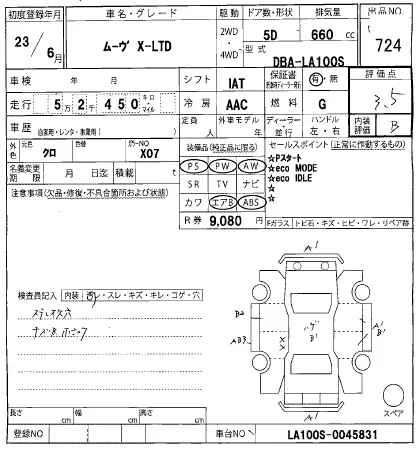 初度登録年月
車名・グレード
駆動
ドア数・形状
排気量
出品NO
23/6月
ムーヴ X-LTD
2WD・4WD
5D
660 cc
724
型式
DBA-LA100S
車検 年 月
シフト
IAT
保証書
有・無
評価点
3.5
走行 5万2千450キロ・マイル
冷房
AAC
燃料
G
車歴 自家用・レンタ・事業用( )
定員 人
外車モデル 年
ディーラー・並行
ハンドル 左・右
内装評価
B
外色
元色
クロ
色替
カラーNO
X07
装備品(純正品に限る)
セールスポイント(正常に作動するもの)
PS PW AW
SR TV ナビ
カワ エアB ABS
☆Pスタート
☆eco MODE
☆eco IDLE
☆
☆
名義変更期限
月 日迄
積載 t
R券 9,080 円
注意事項(欠品・修復・不具合箇所および状態)
Fガラス トビ石・キズ・ヒビ・ワレ・リペア跡
検査員記入
内装
・スレ・キズ・キレ・コゲ・穴
A1
B2
AB3
B1
A1
B1
A1
スペア
長さ cm
幅 cm
高さ cm
登録NO
車台NO
LA100S-0045831